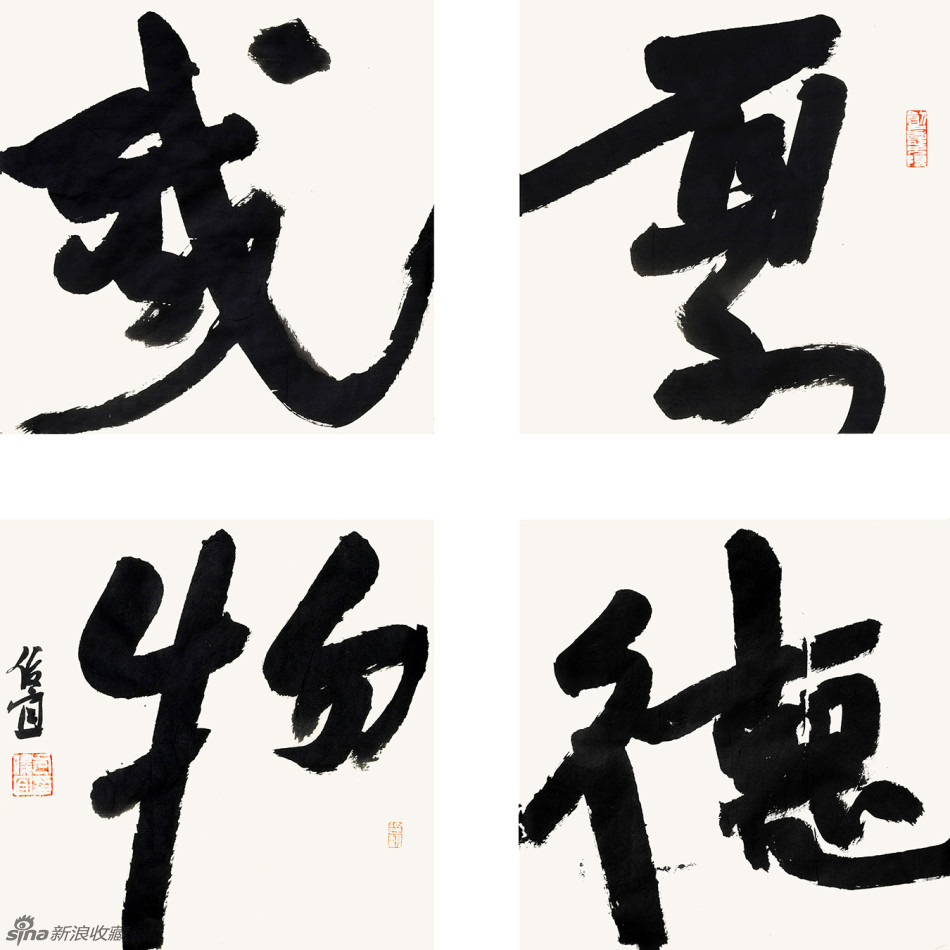 厚德
载物
sina 新浪收藏